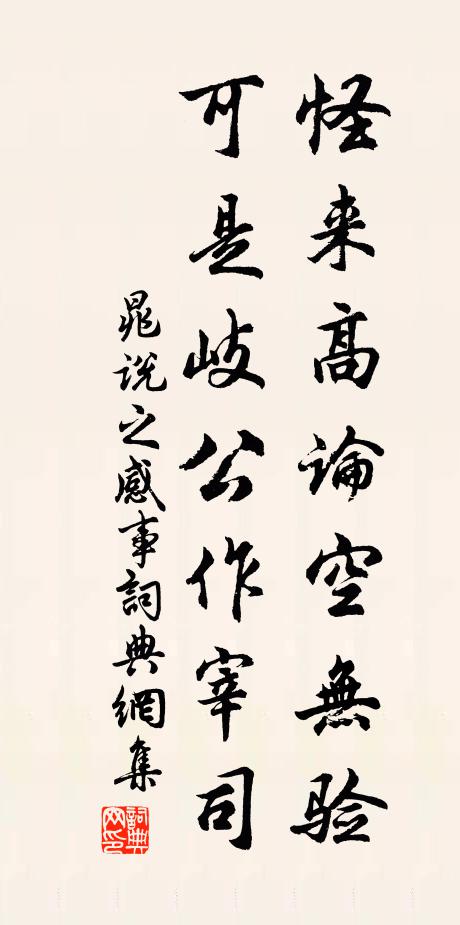 怪来高論空無验
可是歧公作宰司
晁说之感事詞典網集
詞典
网印